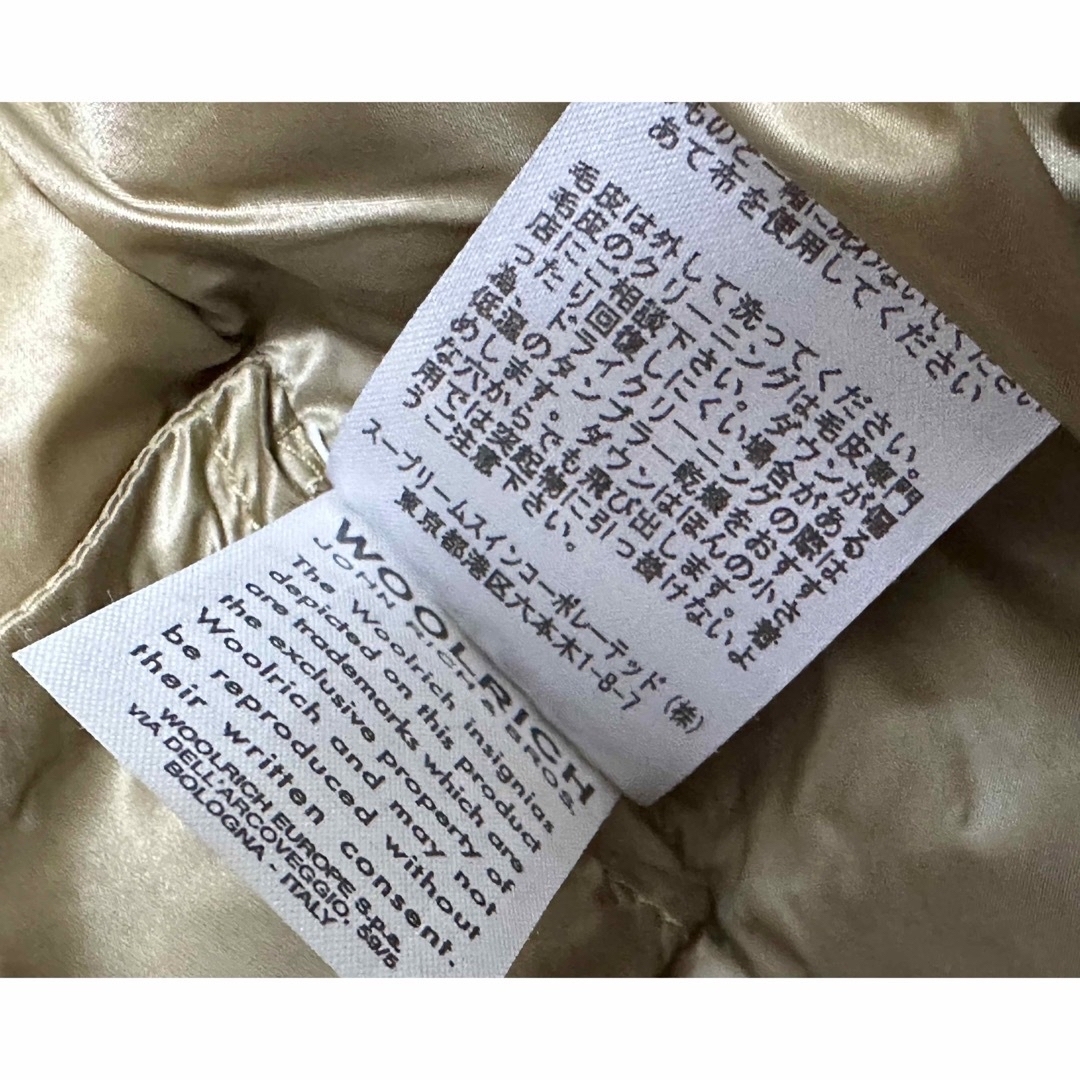 ものと一緒に洗わないでください
あて布を使用してください
毛皮は外して洗ってください。
毛皮のクリーニングは毛皮専門
店にご相談下さい。ダウンが偏
った回復しにくい場合がある
為、ドライクリーニングの際は
低温のタンブラー乾燥をおすす
めします。ダウンはほんの小さ
な穴からでも飛び出します。着
用では突起物に引っ掛けないよ
うご注意下さい。
スープリームスインコーポレーテッド(株)
東京都港区六本木1-8-7
WOOLRICH
JOHN RICH & BROS.
The Woolrich insignias
depicted on this product
are trademarks which are
the exclusive property of
Woolrich and may not
be reproduced without
their written consent.
WOOLRICH EUROPE s.p.a.
VIA DELL'ARCOVEGGIO, 59/5
BOLOGNA - ITALY